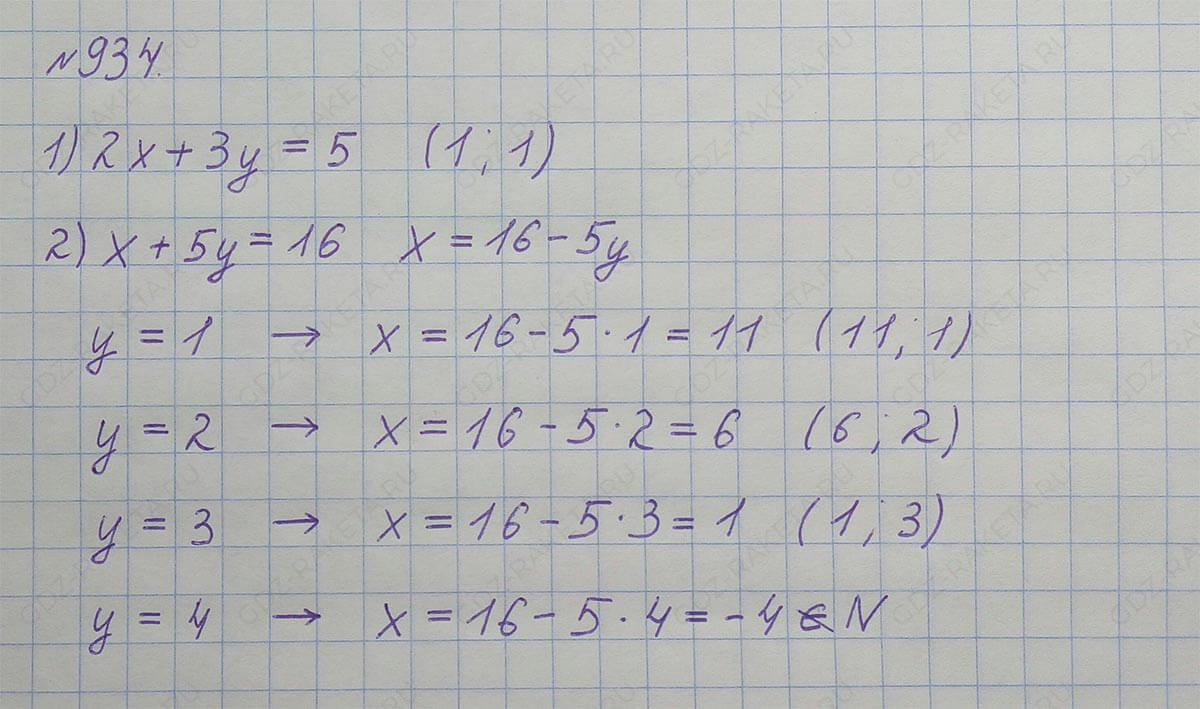 №934.
1) 2x + 3y = 5 (1; 1)
2) x + 5y = 16 x = 16 - 5y
y = 1 → x = 16 - 5 · 1 = 11 (11; 1)
y = 2 → x = 16 - 5 · 2 = 6 (6; 2)
y = 3 → x = 16 - 5 · 3 = 1 (1; 3)
y = 4 → x = 16 - 5 · 4 = -4 ∉ N
GDZ-RAKETA.RU